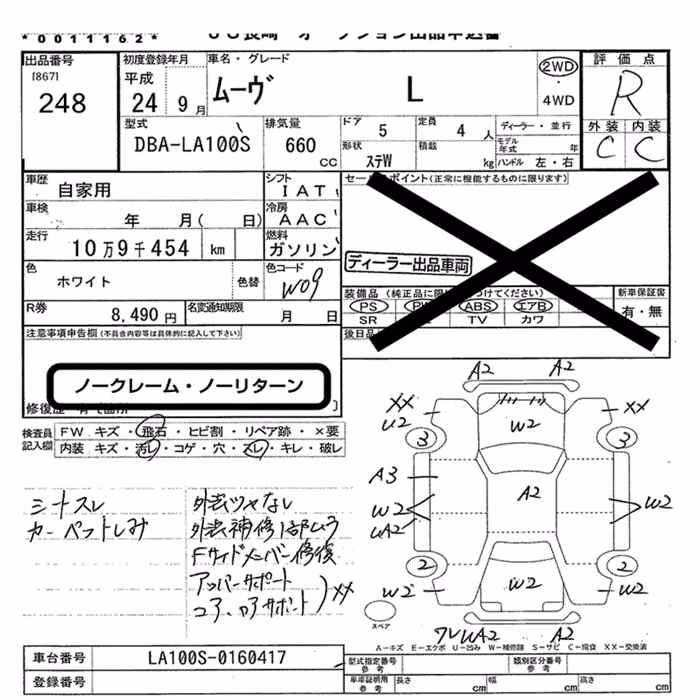 *00111162*
出品番号
[867]
248
初度登録年月
平成
24 9月
車名・グレード
ムーヴ L
2WD
・
4WD
評価点
R
外装 内装
C C
型式
DBA-LA100S
排気量
660
CC
ドア 5
定員 4 人
形状 ステW
積載 kg
ディーラー・並行
モデル年式 年
ハンドル 左・右
車歴
自家用
シフト
IAT
車検
年 月( 日)
冷房
AAC
走行
10万9千454 km
燃料
ガソリン
色
ホワイト
色替
色コード
W09
R券
8,490円
名変通知期限
月 日
セールスポイント(正常に機能するものに限ります)
ディーラー出品車両
PS ABS エアB
SR TV カワ
新車保証書
有・無
後日品
注意事項申告欄(不具合内容等は具体的に記入して下さい)
ノークレーム・ノーリターン
検査員
記入欄
FW キズ・飛石・ヒビ割・リペア跡・×要
内装 キズ・汚レ・コゲ・穴・スレ・キレ・破レ
シートスレ
カーペットしみ
外装ツヤなし
Fサイドメンバー修復
アッパーサポート
コアロアサポート
XX
A2 A2
XX XX
U2
W2
3 3
A3
A2
W2 W2
UA2
2 2
W2 W2 W2
スペア
ワレ WA2 A2
A−キズ E−エクボ U−凹み W−補修跡 S−サビ C−腐食 XX−交換済
車台番号
LA100S-0160417
登録番号
型式指定番号
参考
類別区分番号
参考
車庫証明用
参考
長さ cm
幅 cm
高さ cm